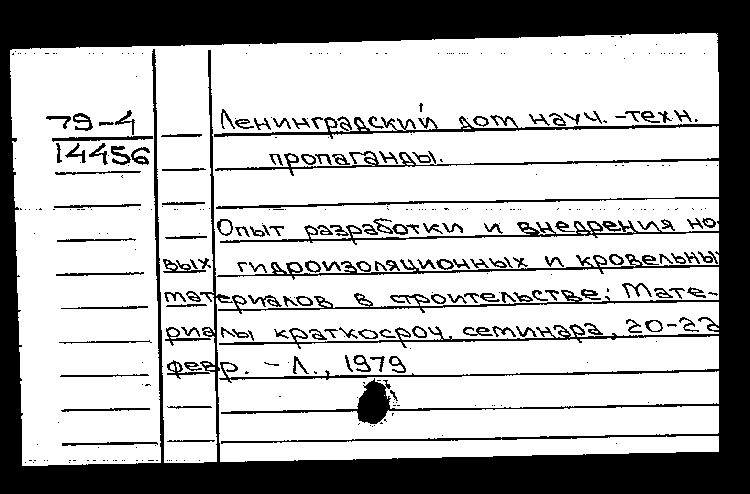 79-4
14456
Ленинградский дом науч.-техн.
пропаганды.
Опыт разработки и внедрения но-
вых гидроизоляционных и кровельных
материалов в строительстве: Мате-
риалы краткосроч. семинара, 20-22
февр. - Л., 1979.